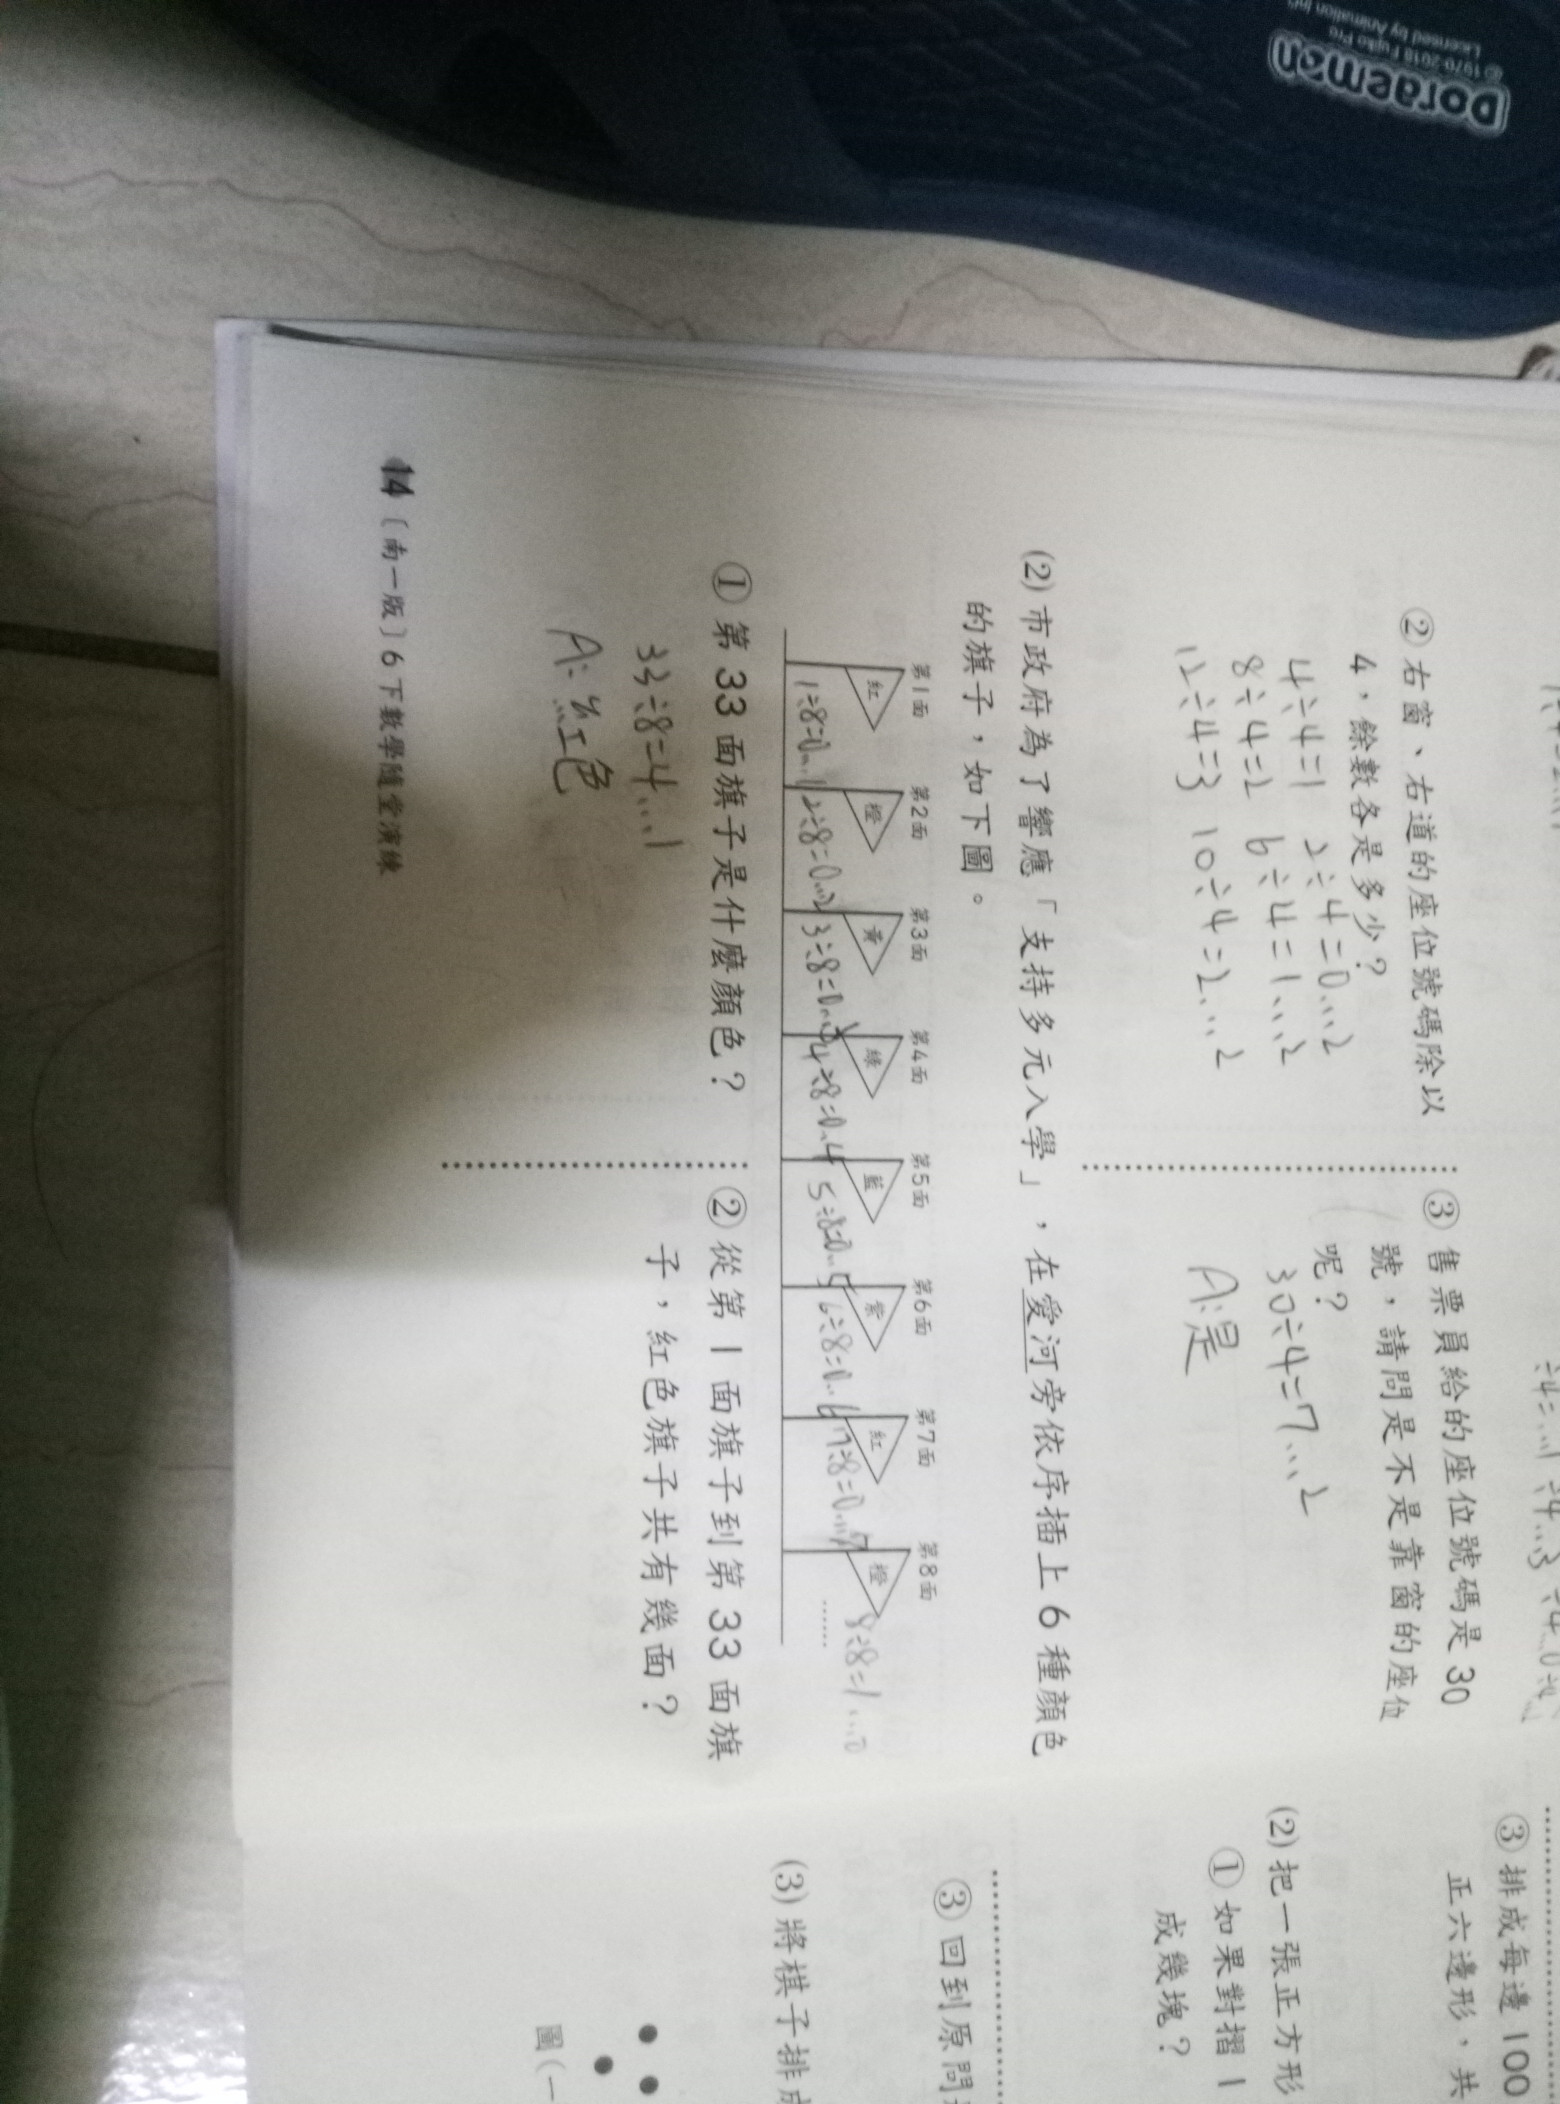 Doraemon
© 1970-2018 Fujiko Pro
Licensed by Animation Int'
② 右窗、右道的座位號碼除以
4,餘數各是多少?
4÷4=1 2÷4=0...2
8÷4=2 6÷4=1...2
12÷4=3 10÷4=2...2
③ 售票員給的座位號碼是 30
號,請問是不是靠窗的座位
呢?
30÷4=7...2
A:是
(2) 市政府為了響應「支持多元入學」,在愛河旁依序插上 6 種顏色
的旗子,如下圖。
第1面 第2面 第3面 第4面 第5面 第6面 第7面 第8面
紅 橙 黃 綠 藍 紫 紅 橙 ……
1÷8=0...1 2÷8=0...2 3÷8=0...3 4÷8=0...4 5÷8=0...5 6÷8=0...6 7÷8=0...7 8÷8=1...0
① 第 33 面旗子是什麼顏色?
33÷8=4...1
A:紅色
② 從第 1 面旗子到第 33 面旗
子,紅色旗子共有幾面?
14〔南一版〕6 下數學隨堂演練
③ 排成每邊 100
正六邊形,共
(2) 把一張正方形
① 如果對摺 1
成幾塊?
③ 回到原問
(3) 將棋子排成
圖(一